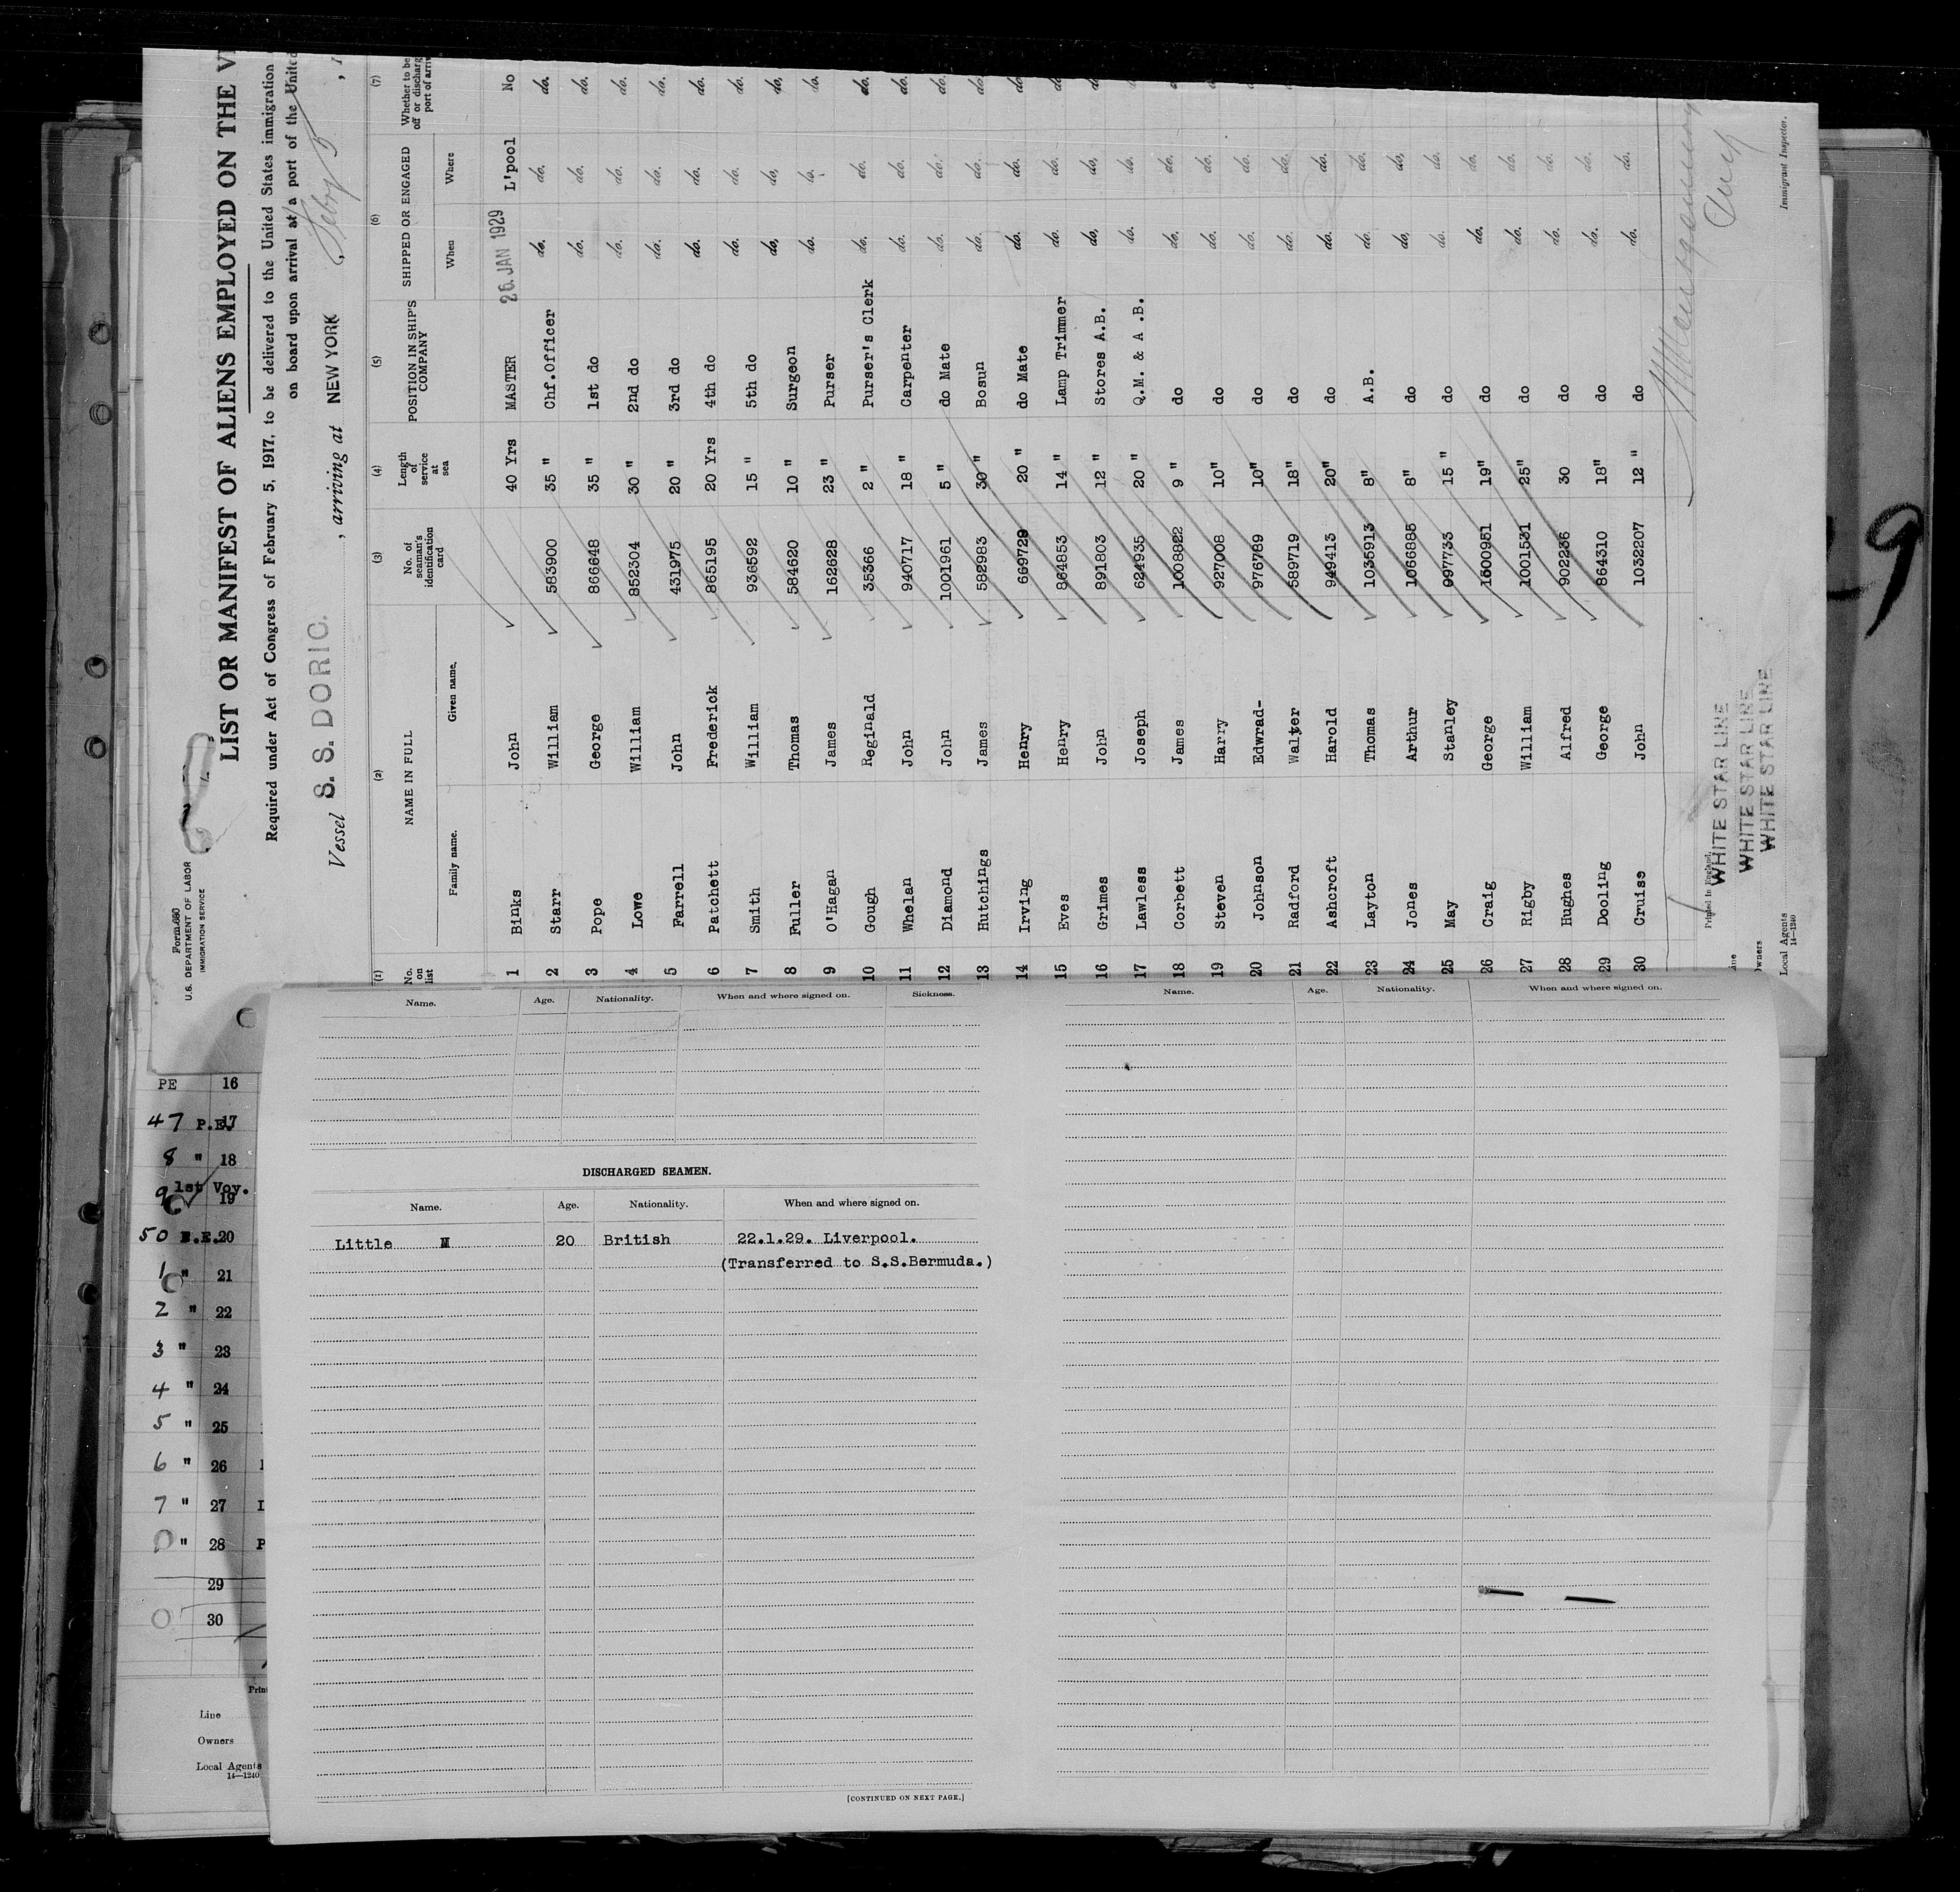 Form 680
U.S. DEPARTMENT OF LABOR
IMMIGRATION SERVICE
LIST OR MANIFEST OF ALIENS EMPLOYED ON THE
Required under Act of Congress of February 5, 1917, to be delivered to the United States immigration
on board upon arrival at a port of the United
Vessel S. S. DORIC. , arriving at NEW YORK , Feby 5 , 1
(1) (2) (3) (4) (5) (6) (7)
No. on list NAME IN FULL No. of seaman's identification card Length of service at sea POSITION IN SHIP'S COMPANY SHIPPED OR ENGAGED Whether to be
off or discharg
port of arriv
Family name. Given name. When Where
1 Binks John 40 Yrs MASTER 26. JAN 1929 L'pool No
2 Starr William 583900 35 " Chf.Officer do. do. do.
3 Pope George 866648 35 " 1st do do. do. do.
4 Lowe William 852304 30 " 2nd do do. do. do.
5 Farrell John 431975 20 " 3rd do do. do. do.
6 Patchett Frederick 865195 20 Yrs 4th do do. do. do.
7 Smith William 936592 15 " 5th do do. do. do.
8 Fuller Thomas 584620 10 " Surgeon do, do, do,
9 O'Hagan James 162628 23 " Purser do. do. do.
10 Gough Reginald 353666 2 " Purser's Clerk do. do. do.
11 Whelan John 940717 18 " Carpenter do. do. do.
12 Diamond John 1001961 5 " do Mate do. do. do.
13 Hutchings James 582983 30 " Bosun do. do. do.
14 Irving Henry 669729 20 " do Mate do. do. do
15 Eves Henry 864853 14 " Lamp Trimmer do. do. do
16 Grimes John 891803 12 " Stores A.B. do, do, d
17 Lawless Joseph 624935 20 " Q.M. & A .B. do. do.
18 Corbett James 1008822 9 " do do. do.
19 Steven Harry 927008 10" do do. do.
20 Johnson Edwrad- 976789 10" do do. do.
21 Radford Walter 589719 18" do do. do.
22 Ashcroft Harold 949413 20" do do. do.
23 Layton Thomas 1035913 8" A.B. do. do.
24 Jones Arthur 1066885 8" do do, do,
25 May Stanley 997733 15 " do do. do.
26 Craig George 1600951 19" do do. do.
27 Rigby William 1001531 25" do do. do.
28 Hughes Alfred 902236 30 do do. do.
29 Dooling George 864310 18" do do. do.
30 Cruise John 1032207 12 " do do. do.
Printed in England.
WHITE STAR LINE
WHITE STAR LINE
WHITE STAR LINE
ine
Owners
Local Agents
14—1240
Immigrant Inspector.
9
Name. Age. Nationality. When and where signed on. Sickness.
DISCHARGED SEAMEN.
Name. Age. Nationality. When and where signed on.
Little M 20 British 22.1.29. Liverpool.
(Transferred to S.S.Bermuda.)
[CONTINUED ON NEXT PAGE.]
Name. Age. Nationality. When and where signed on.
PE 16
47 P.E. 17
8 " 18
9 1st Voy. 19
50 P.E. 20
1 " 21
2 " 22
3 " 23
4 " 24
5 " 25
6 " 26
7 " 27
" 28 P
29
30
Prin
Line
Owners
Local Agents
14—1240